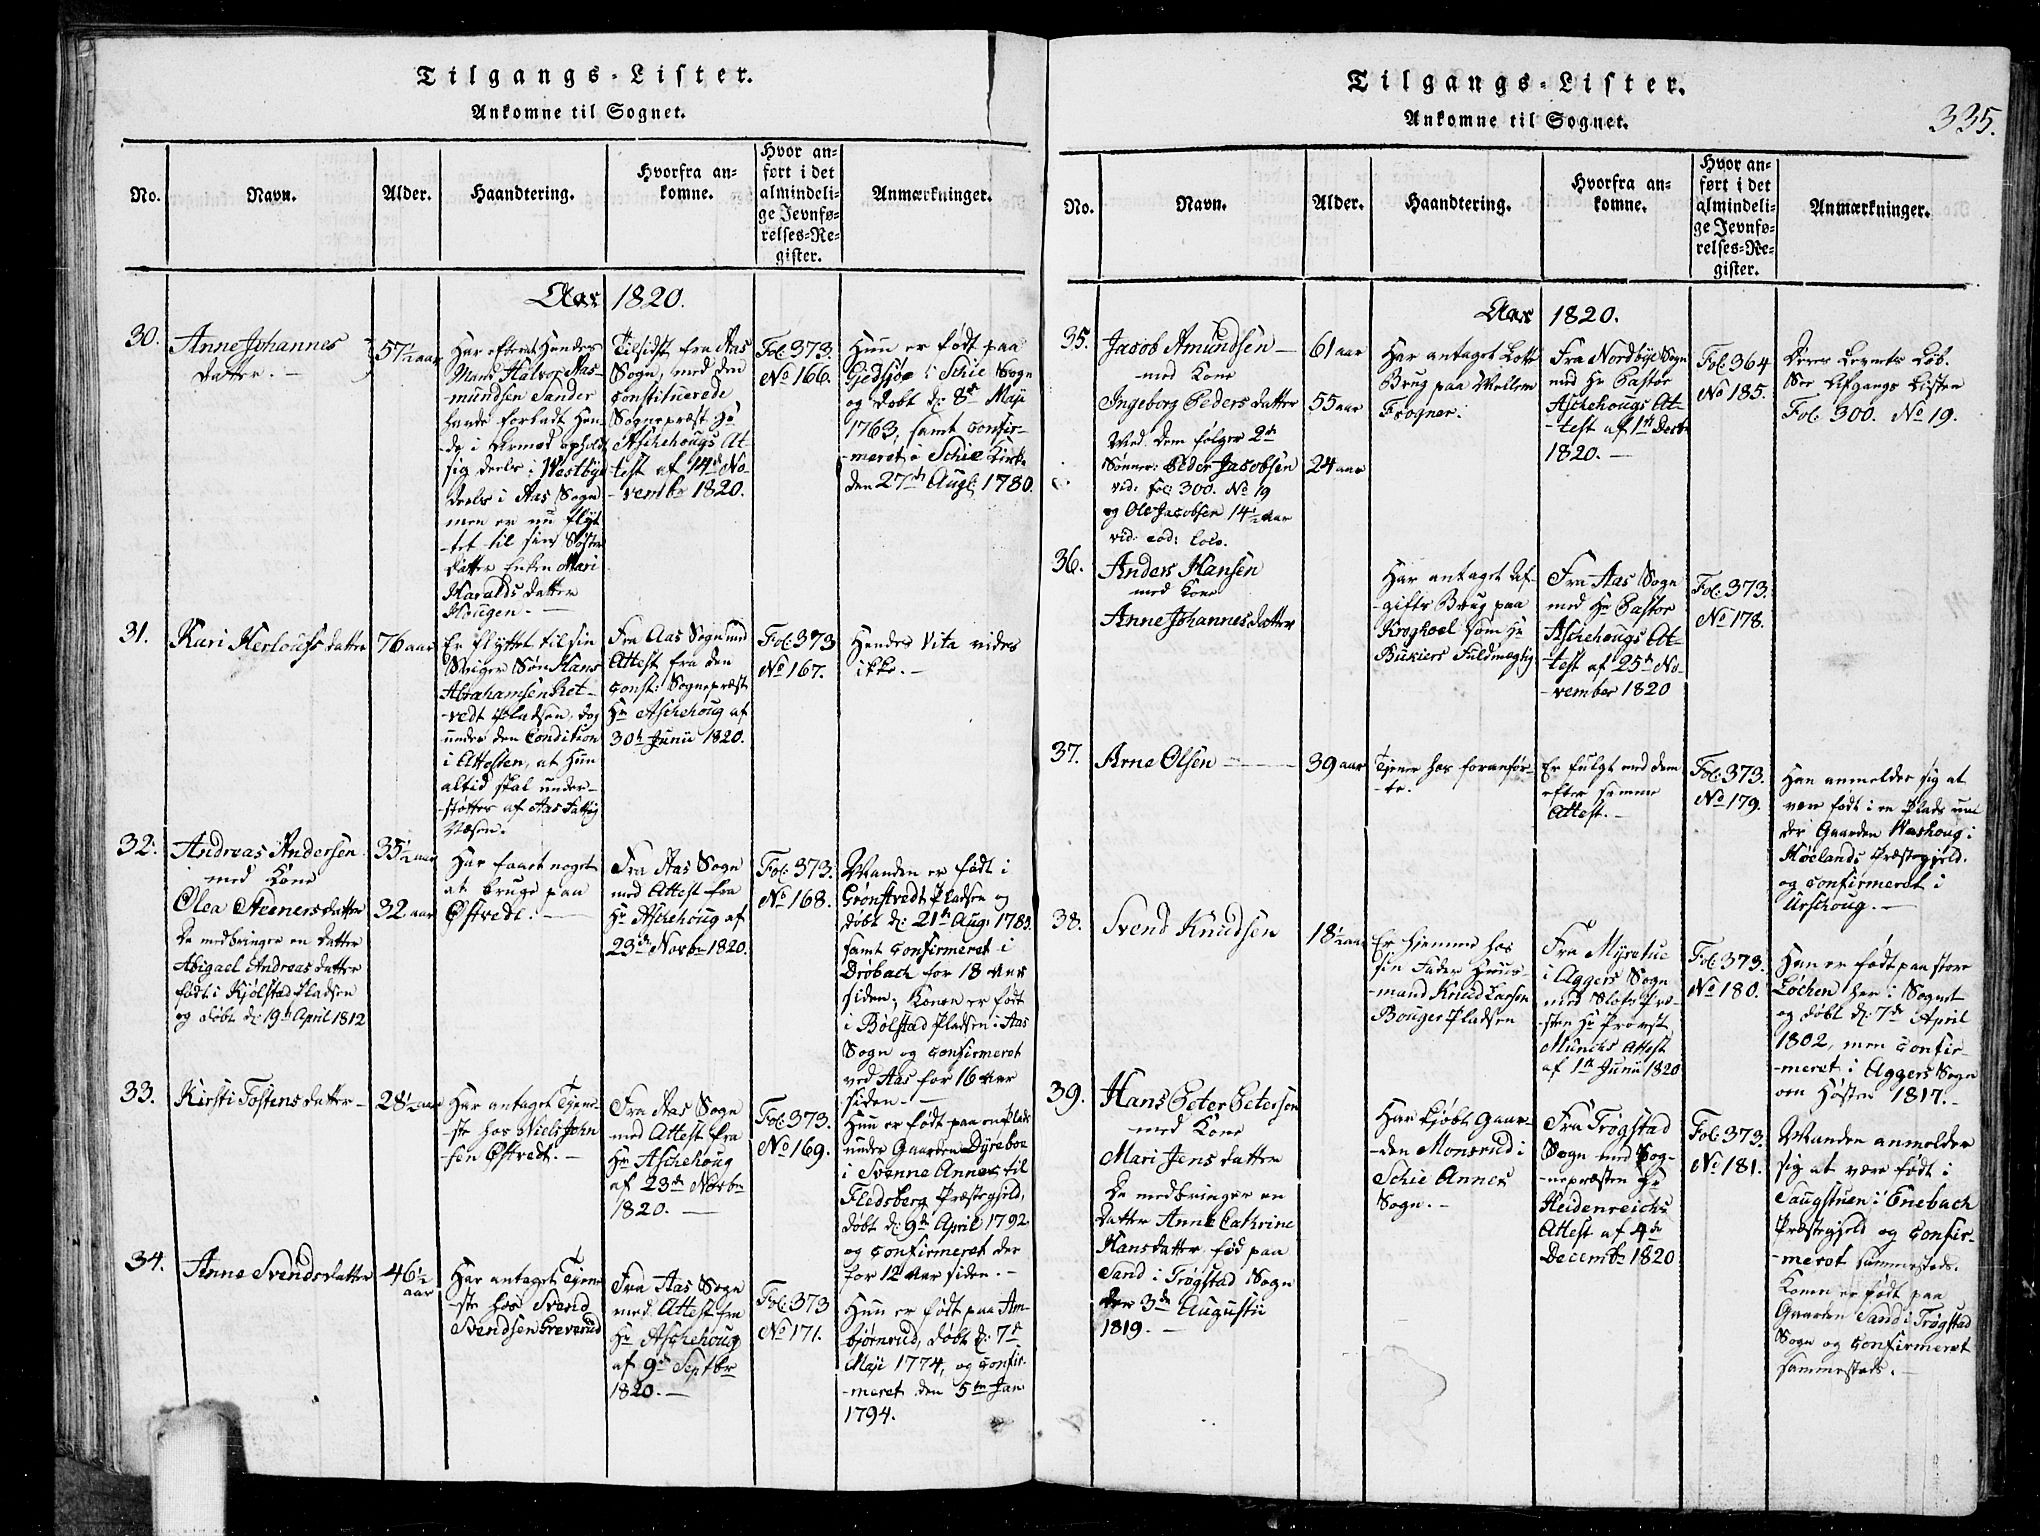 Tilgangs-Lister.
Ankomne til Sognet.
No.
Navn.
Alder.
Haandtering.
Hvorfra an-
komne.
Hvor an-
ført i det
almindeli-
ge Jevnfø-
relses-Re-
gister.
Anmærkninger.
Aar 1820.
30.
Anne Johannes
datter. —
57½ aar
Har efterat Hendes
Mand Halvor Aas-
mundsen Sander
havde forladt Hen-
de i Armod opholdt
sig deels i Westbye
deels i Aas Sogn
men er nu flyt
-tet til sin Søster
datter Enken Mari
Haralds datter
Hougen. —
Tilsidst fra Aas
Sogn, med den
constituerede
Sognepræst Hr
Aschehougs At-
test af 14de No-
-vembr 1820.
Fol: 373.
No 166.
Hun er født paa
Gjedsjøe i Schie Sogn
og døbt d: 8de Maji
1763, samt confir-
-meret i Schie Kirke
den 27de Augt: 1780.
31.
Kari Herloufs datter
76 aar
Er flyttet til sin
Sviger Søn Hans
Abrahamsen Rot-
-vedt Pladsen, dog
under den Condition
i Attesten, at Hun
altid skal under-
-støttes af Aas Fattig
Væsen.
Fra Aas Sogn med
Attest fra den
const: Sognepræst
Hr Aschehoug af
30te Junii 1820.
Fol: 373
No 167.
Hendes Vita vides
ikke. —
32.
Andreas Andersen
med Kone
Olea Steenersdatter
De medbringer en datter
Abigael Andreas datter
født i Kjølstad Pladsen
og døbt d: 19de April 1812
35½ aar
32 aar
Har faaet noget
at bruge paa
Østvedt. —
Fra Aas Sogn
med Attest fra
Hr Aschehoug af
23de Novbr 1820.
Fol: 373.
No 168.
Manden er født i
Grønstvedt Pladsen og
døbt d: 21de Aug: 1785
samt confirmeret i
Drøbach for 18 Aar
siden; Konen er født
i Bølstad Pladsen i Aas
Sogn og confirmeret
ved Aas for 16 Aar
siden. —
33.
Kirsti Tostens datter —
28½ aar
Har antaget Tjene-
-ste hos Niels John
sen Østvedt. —
Fra Aas Sogn
med Attest fra
Hr Aschehoug
af 23de Novbr
1820. —
Fol: 373.
No 169.
Hun er født paa en Plads
under Gaarden Dyreboe
i Svenne Annex til
Fledsberg Præstegjeld,
døbt d: 9de April 1792
og confirmeret der
for 12 Aar siden. —
34.
Anne Svendsdatter
46½
aar
Har antaget Tjene
-ste hos Svend
Svendsen Greverud
Fra Aas Sogn
med Attest fra
Hr Aschehoug
af 9de Septbr
1820. —
Fol: 373
No 171.
Hun er født paa Am-
bjørnrud, døbt d: 7de
Maji 1774, og confir-
-meret den 5te Jan
1794.
Tilgangs-Lister.
Ankomne til Sognet.
335.
No.
Navn.
Alder.
Haandtering.
Hvorfra an-
komne.
Hvor an-
ført i det
almindeli-
ge Jevnfø-
relses-Re-
gister.
Anmærkninger.
Aar 1820.
35.
Jacob Amundsen —
med Kone
Ingeborg Peders datter
Med dem følger 2de
Sønner: Peder Jacobsen
vid: fol: 300. No 19
og Ole Jacobsen 14½ Aar
vid: eod: loco.
61 aar
55 aar
24 aar
Har antaget Lotte
Brug paa Mellem
Frogner.
Fra Nordbye Sogn
med Hr Pastor
Aschehougs At-
-test af 1te Decbr
1820. —
Fol: 364
No 185.
Deres Levnets Løb.
See Afgangs Listen
Fol: 300. No 19.
36.
Anders Hansen
med Kone
Anne Johannesdatter
Har antaget Af-
-gifts Brug paa
Kroghoel som Hr
Bukiers Fuldmægtig
Fra Aas Sogn
med Hr Pastor
Aschehougs At-
-test af 25de No-
-vember 1820
Fol: 373.
No 178.
37.
Arne Olsen —
39 aar
Tjener hos foranfør-
-te.
Er fulgt med dem
efter samme
Attest. —
Fol: 373.
No 179.
Han anmelder sig at
være født i en Plads un
der Gaarden Washoug i
Høelands Præstegjeld.
og confirmeret i
Urschoug. —
38.
Svend Knudsen
18½ aar
Er hjemme hos
sin Fader Huus-
-mand Knud Larsen
Bonger Pladsen
Fra Myrelue
i Aggers Sogn
med Slots Præ-
sten Hr Provst
Munchs Attest
af 1te Junii 1820
Fol: 373.
No 180.
Han er født paa store
Løchen her i Sognet
og døbt d: 7de April
1802, men confir-
-meret i Aggers Sogn
om Høsten 1817. —
39.
Hans Peter Petersen
med Kone
Mari Jens datter
De medbringer en
datter Anne Cathrine
Hansdatter fød paa
Sand i Trøgstad Sogn
den 3de Augustii
1819. —
Har kjøbt Gaar-
-den Monsrud i
Schie Annex
Sogn. —
Fra Trøgstad
Sogn med Sog-
-nepræsten Hr
Heidenreichs
Attest af 4de
Decembr 1820
Fol: 373.
No 181.
Manden anmelder
sig at være født i
Saugstuen i Enebach
Præstegjeld og confir-
-meret sammesteds.
Konen er født paa
Gaarden Sand i Trøgstad
Sogn og confirmeret
sammesteds. —